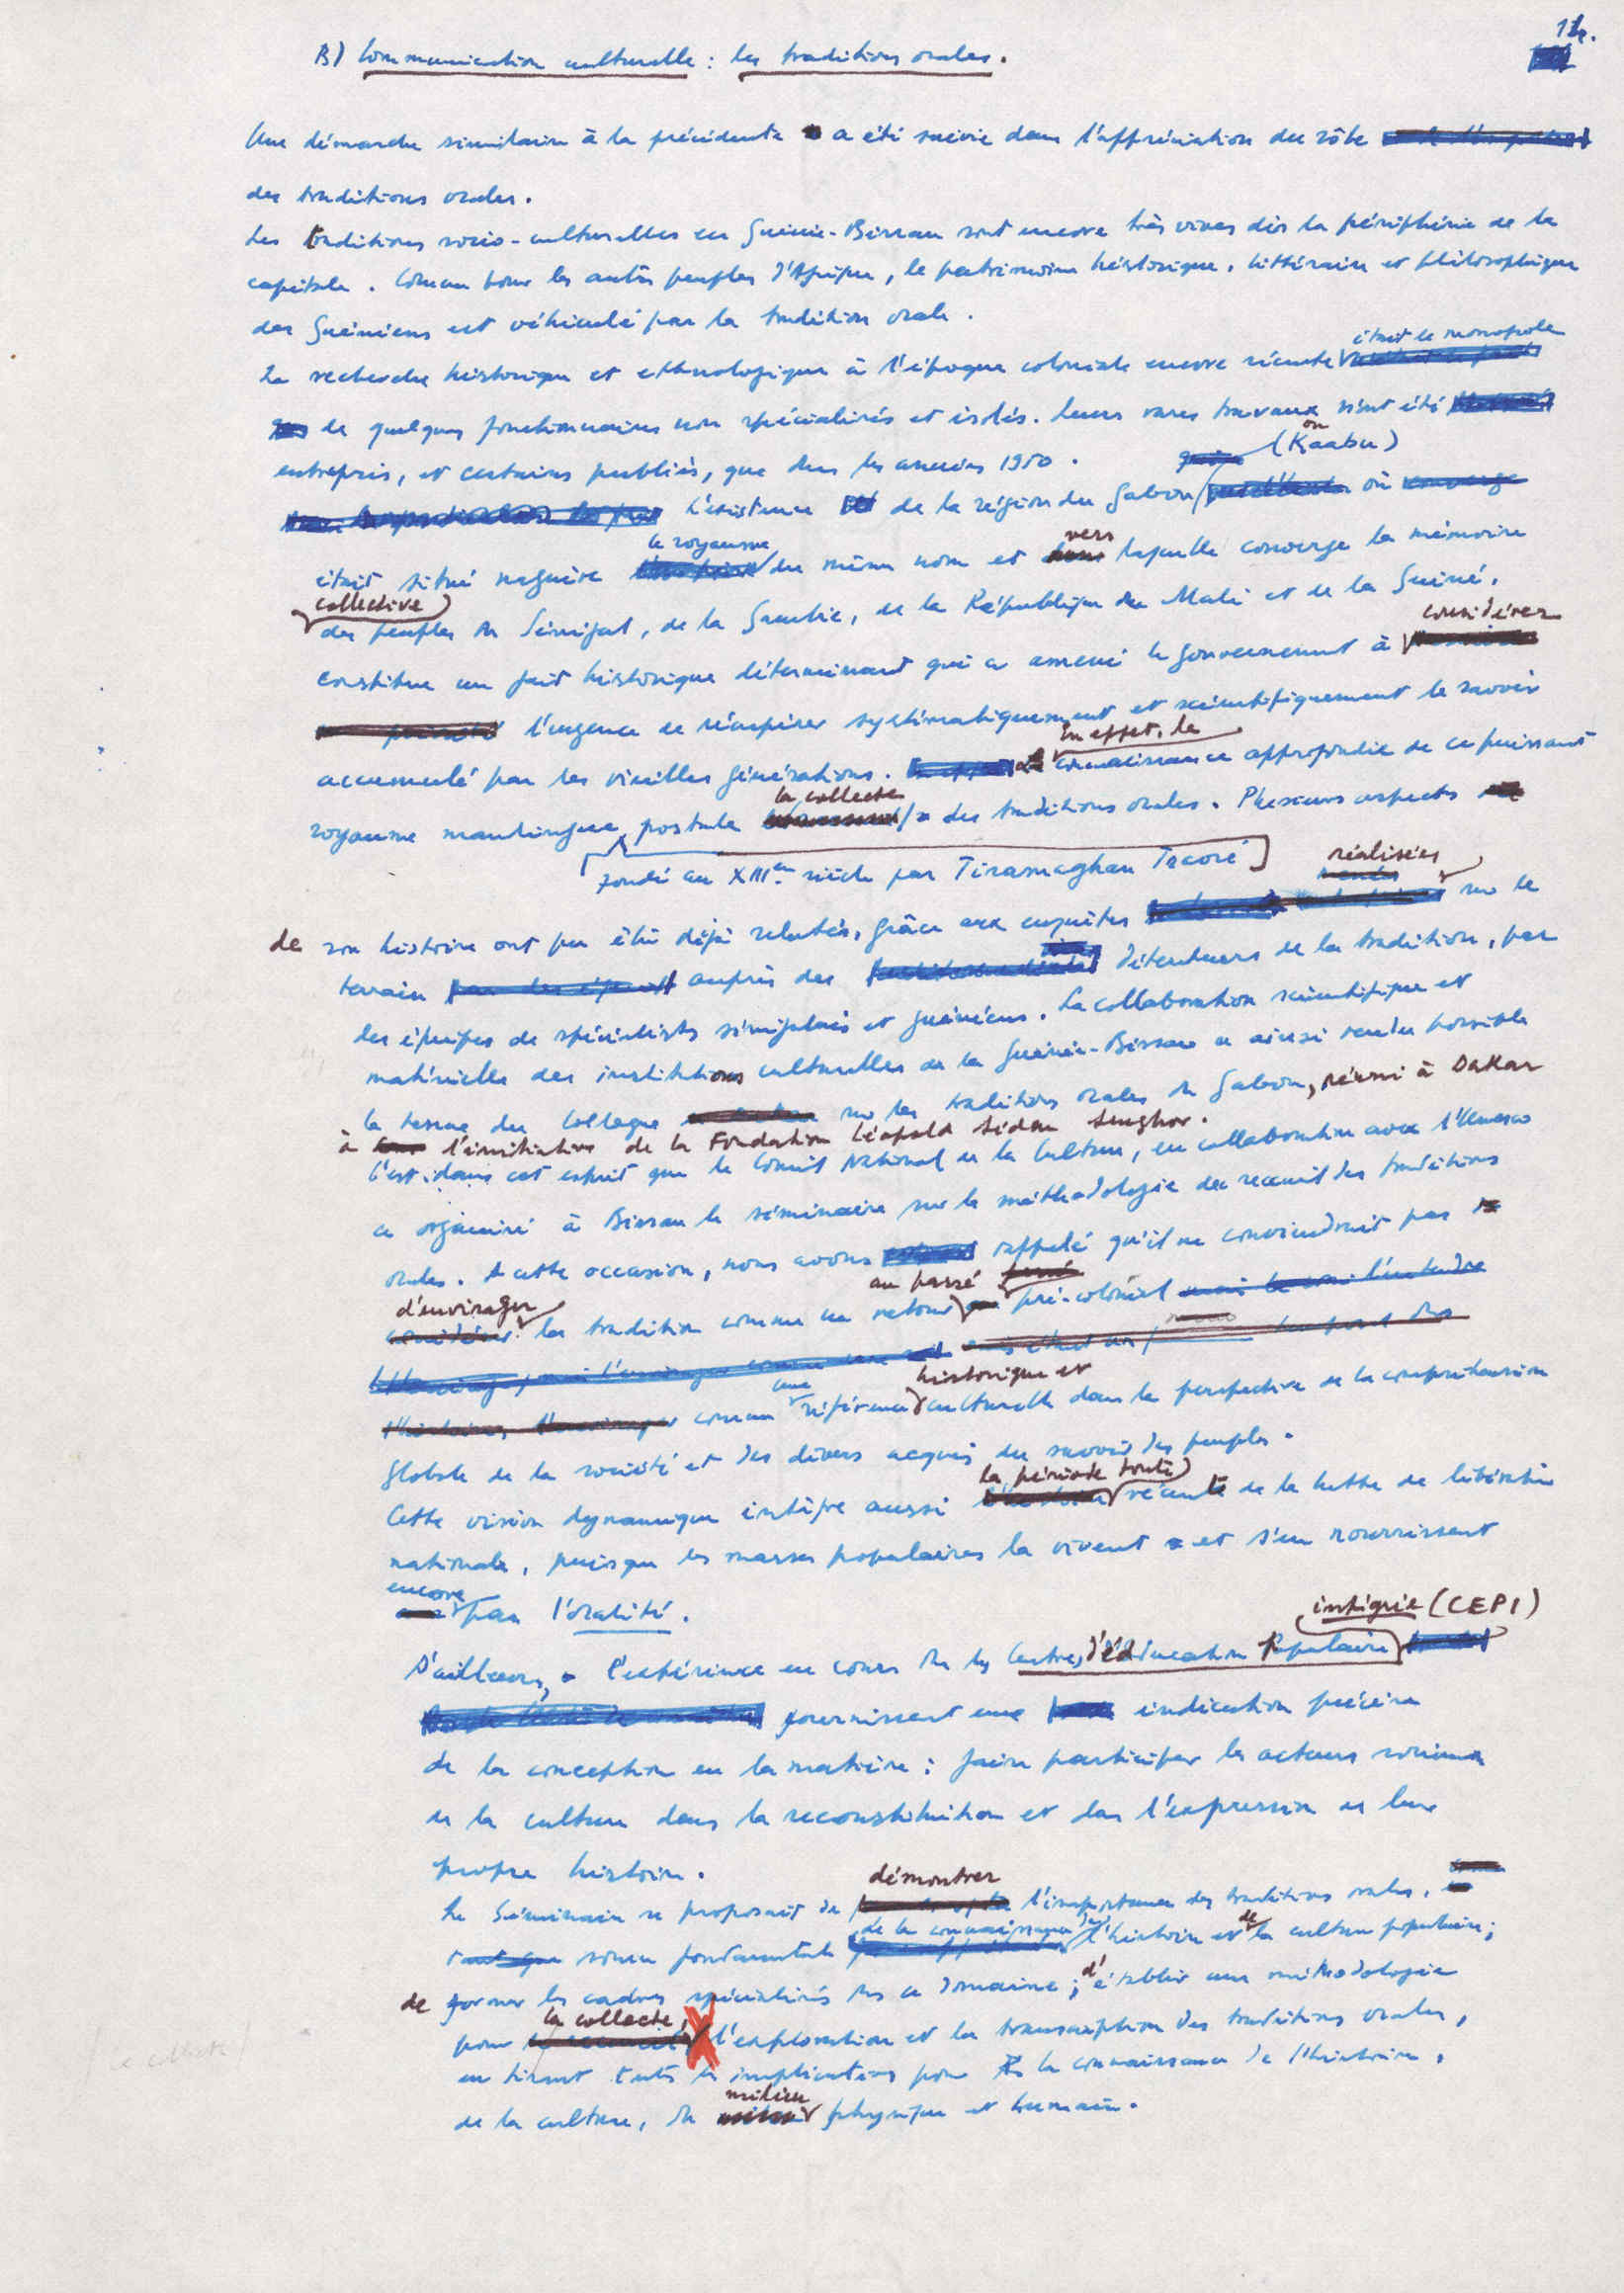 12.
B) Communication culturelle : les traditions orales.
Une démarche similaire à la précédente a été suivie dans l'appréciation du rôle
des traditions orales.
Les traditions socio-culturelles en Guinée-Bissau sont encore très vives dès la périphérie de la
capitale. Comme pour les autres peuples d'Afrique, le patrimoine historique, littéraire et philosophique
des Guinéens est véhiculé par la tradition orale.
était le monopole
La recherche historique et ethnologique à l'époque coloniale encore récente
de quelques fonctionnaires non spécialisés et isolés. Leurs rares travaux n'ont été
entrepris, et certains publiés, que dans les années 1950.
ou (Kaabu)
L'existence de la région du Gabou où
le royaume vers
était situé naguère du même nom et laquelle converge la mémoire
collective
des peuples du Sénégal, de la Gambie, de la République du Mali et de la Guinée,
considérer
constitue un fait historique déterminant qui a amené le gouvernement à
l'urgence de récupérer systématiquement et scientifiquement le savoir
En effet, la
accumulé par les vieilles générations. connaissance approfondie de ce puissant
la collecte
royaume mandingue, postule des traditions orales. Plusieurs aspects
fondé au XIIIème siècle par Tiramaghan Traoré
réalisées
de son histoire ont pu être déjà relatés, grâce aux enquêtes sur le
terrain auprès des détenteurs de la tradition, par
des équipes de spécialistes sénégalais et guinéens. La collaboration scientifique et
matérielle des institutions culturelles de la Guinée-Bissau a ainsi rendu possible
la tenue du Colloque sur les traditions orales du Gabou, réuni à Dakar
à l'initiative de la Fondation Léopold Sédar Senghor.
C'est dans cet esprit que le Conseil National de la Culture, en collaboration avec l'Unesco
a organisé à Bissau le séminaire sur la méthodologie du recueil des traditions
orales. A cette occasion, nous avons rappelé qu'il ne conviendrait pas
d'envisager au passé
la tradition comme un retour pré-colonial
une historique et
comme référence culturelle dans la perspective de la compréhension
globale de la société et des divers acquis du savoir des peuples.
la période toute
Cette vision dynamique intègre aussi récente de la lutte de libération
nationale, puisque les masses populaires la vivent et s'en nourrissent
encore
par l'oralité.
intégrée (CEPI)
D'ailleurs, l'expérience en cours des Centres d'éducation Populaire
fournissent une indication précise
de la conception en la matière : faire participer les acteurs sociaux
de la culture dans la reconstitution et dans l'expression de leur
propre histoire.
démontrer
Le Séminaire se proposait de l'importance des traditions orales,
de la connaissance de de
source fondamentale l'histoire et la culture populaire ;
de former les cadres spécialisés dans ce domaine ; d'établir une méthodologie
la collecte,
pour l'exploration et la transcription des traditions orales,
en tirant toutes les implications pour la connaissance de l'histoire,
milieu
de la culture, du physique et humain.
la collecte